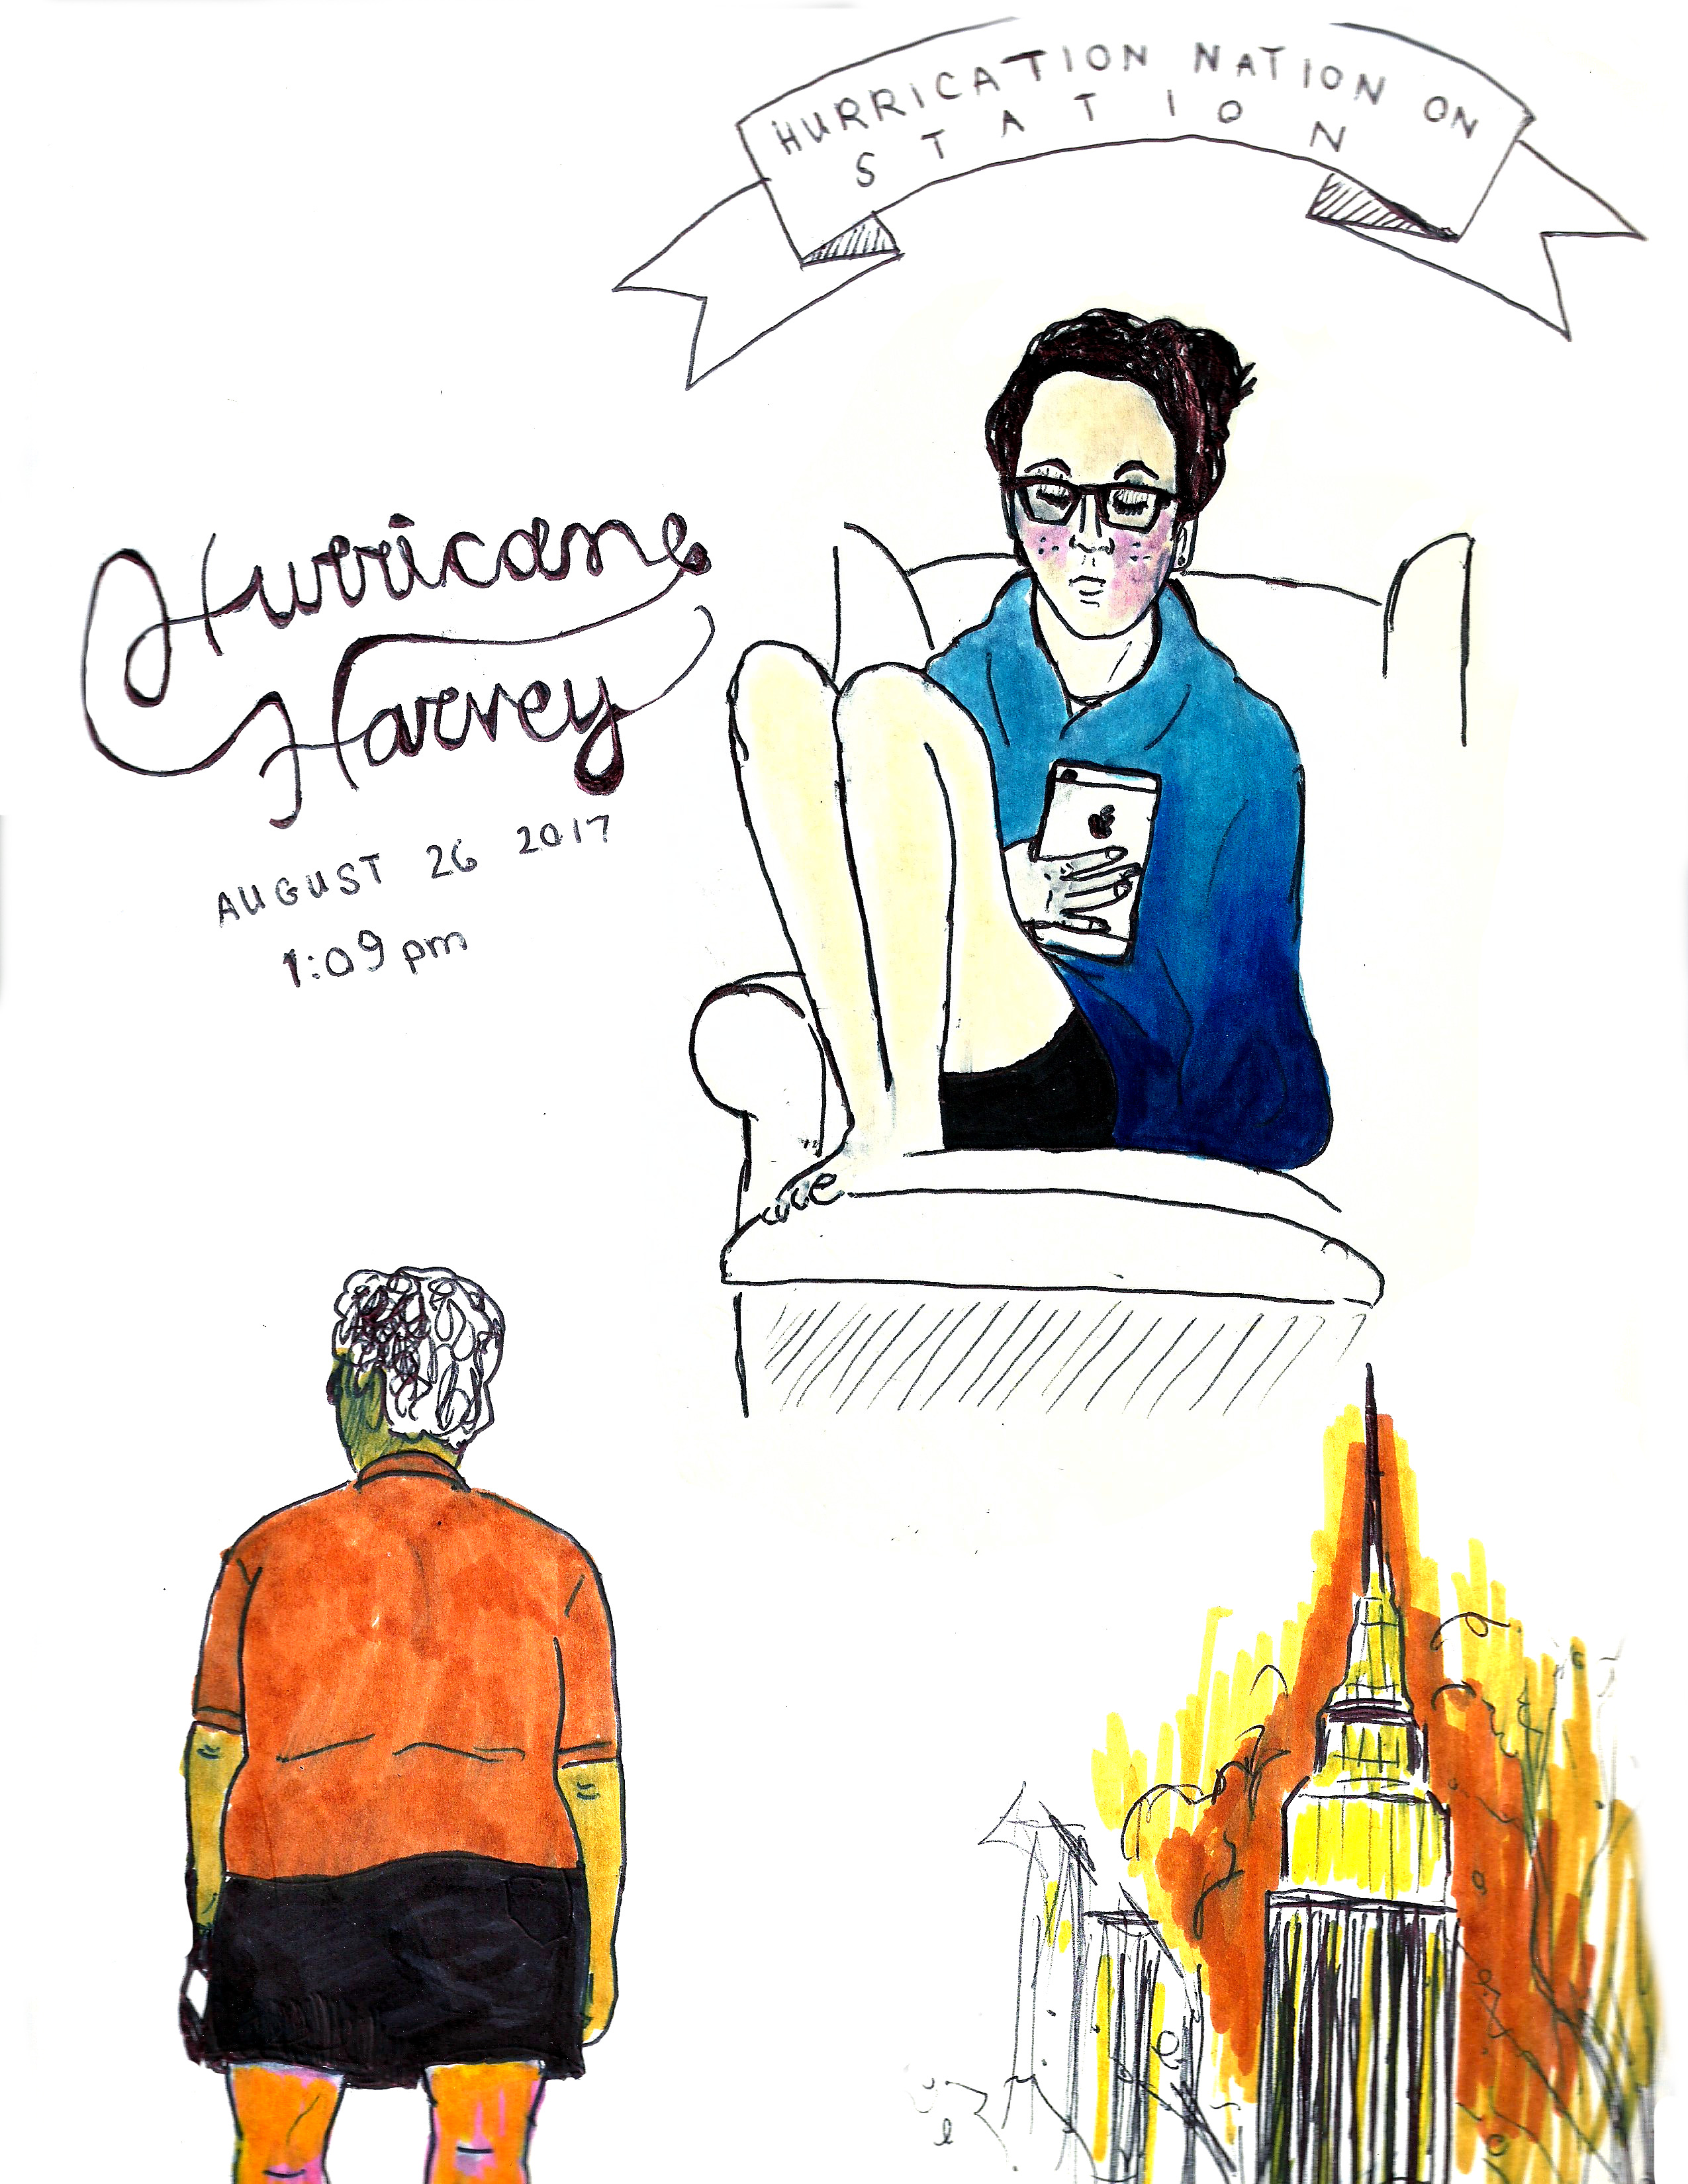 HURRICATION NATION ON
STATION
Hurricane
Harvey
AUGUST 26 2017
1:09 pm